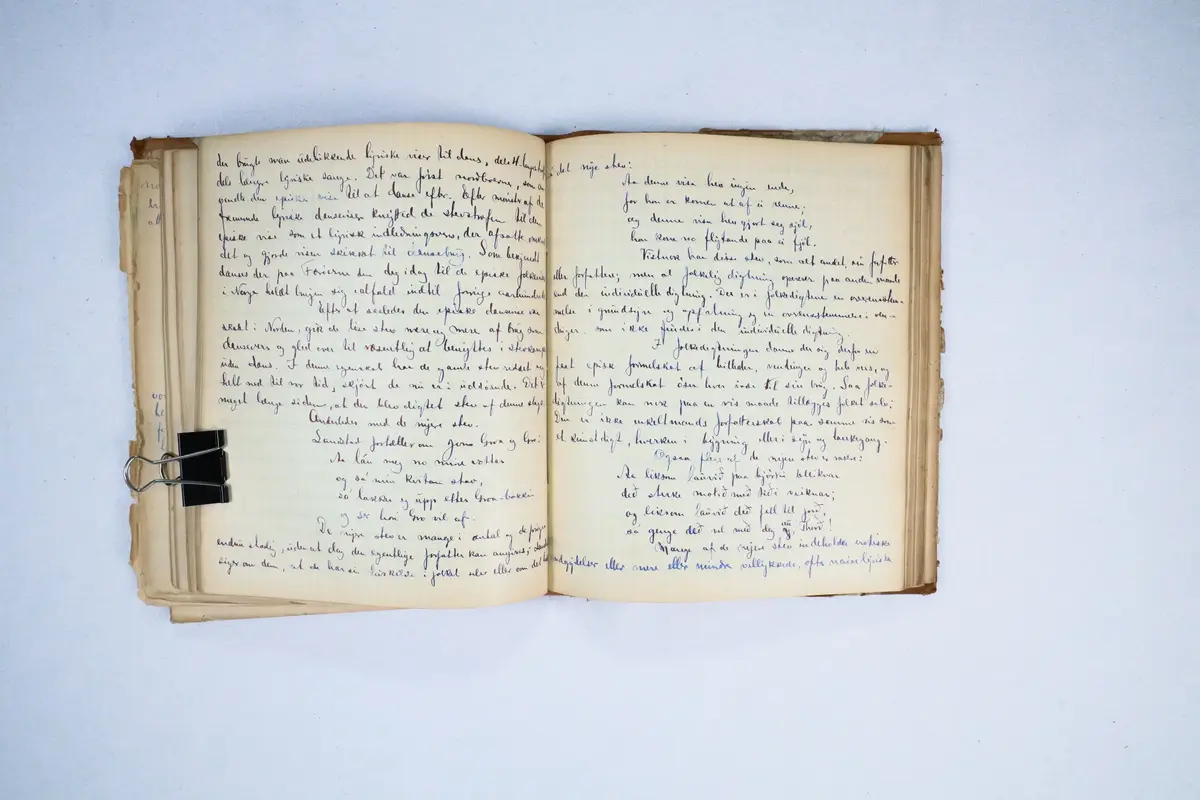 der brugte man udelukkende lyriske viser til dans, dels
dels længre lyriske sange. Det var först nordboerne, som an
vendte den episke vise til at danse efter. Efter mönster af de
fremmende lyriske danseviser knytted de stevstrofen til den
episke vise som et lyrisk indledningsvers, der afsatte
det og gjorde visen skikket til dansebrug. Som bekjendt
danses der paa Færöerne den dag idag til de episke folkeviser
i Norge holdt brugen sig ialfald indtil forrige aarhundre
Efter at saaledes den episke dansevise
skabt i Norden, gik de löse stev mere og mere af brug som
dansevers og gled over til væsentlig at benyttes i stevkamp
uden dans. I denne egenskab har de gamle stev vedset sig
helt ned til vor tid, skjönt de nu er i uddöende. Det er
meget længe siden, at der blev digtet stev af denne slags.
Anderledes med de nyere stev.
Landstad fortæller om Jono Groa og Gro:
Aa lån meg no mine vottar
og så min kvitan stav,
så laskar eg upp etter Groa-bakkin
og ser hori Gro vil af.
De nye stev er mange i antal og de
endnu stadig, uden at dog den egentlige forfatter kan angives;
siger om dem, at de har sin kilde i folket selv eller om det
i det nye stev:
Aa denne visa hev ingen ende,
for hon er komen ut af ei renne;
og denne visa hev gjort seg sjöl,
ho kom no flytande paa ei fjöl.
Vistnok har disse stev, som alt andet, sin forfatter
eller forfattere; men al folkelig digtning opererer paa anden maate
end den individuelle digtning. Der er i folkedigtene en overensstem-
melse i grundsyn og opfatning og en overensstemmelse i ven-
dinger som ikke findes i den individuelle digtning.
I folkedigtningen danner der sig derfor en
fast episk formelskat af billeder, vendinger og hele vers, og
af denne formelskat öser hver især til sin brug. Saa folke-
digtningen kan mere paa en vis maade tillægges folket selv;
Den er ikke enkeltmands forfatterskab paa samme vis som
et kunstdigt, hverken i bygning eller i syn og tankegang.
Ogsaa flere af de nyere stev er vakre:
Aa liksom Laurid paa björkin bleiknar
ded sterke motid med tidi veiknar;
og liksom Laurid ded fell til jord,
so gange ded vel med deg og, Thord!
Mange af de nyere stev indeholder erotiske
udgydelser eller mere eller mindre vellykkede, ofte naive lyriske